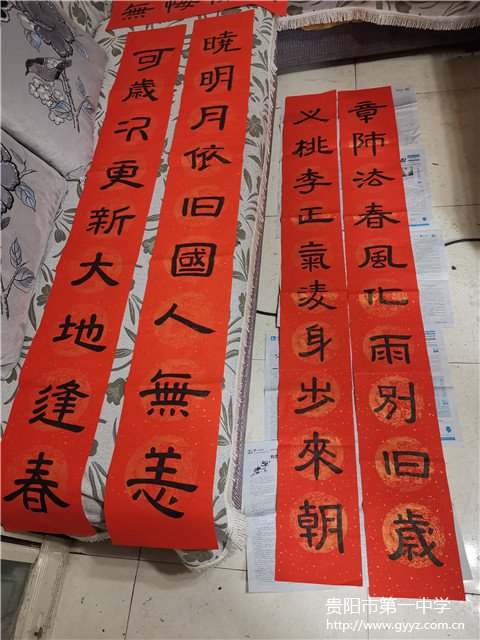 無悔
曉明月依旧國人無恙
可歲次更新大地逢春
章師法春風化雨別旧歲
义桃李正氣凌身步來朝
贵阳市第一中学
http://www.gyyz.com.cn